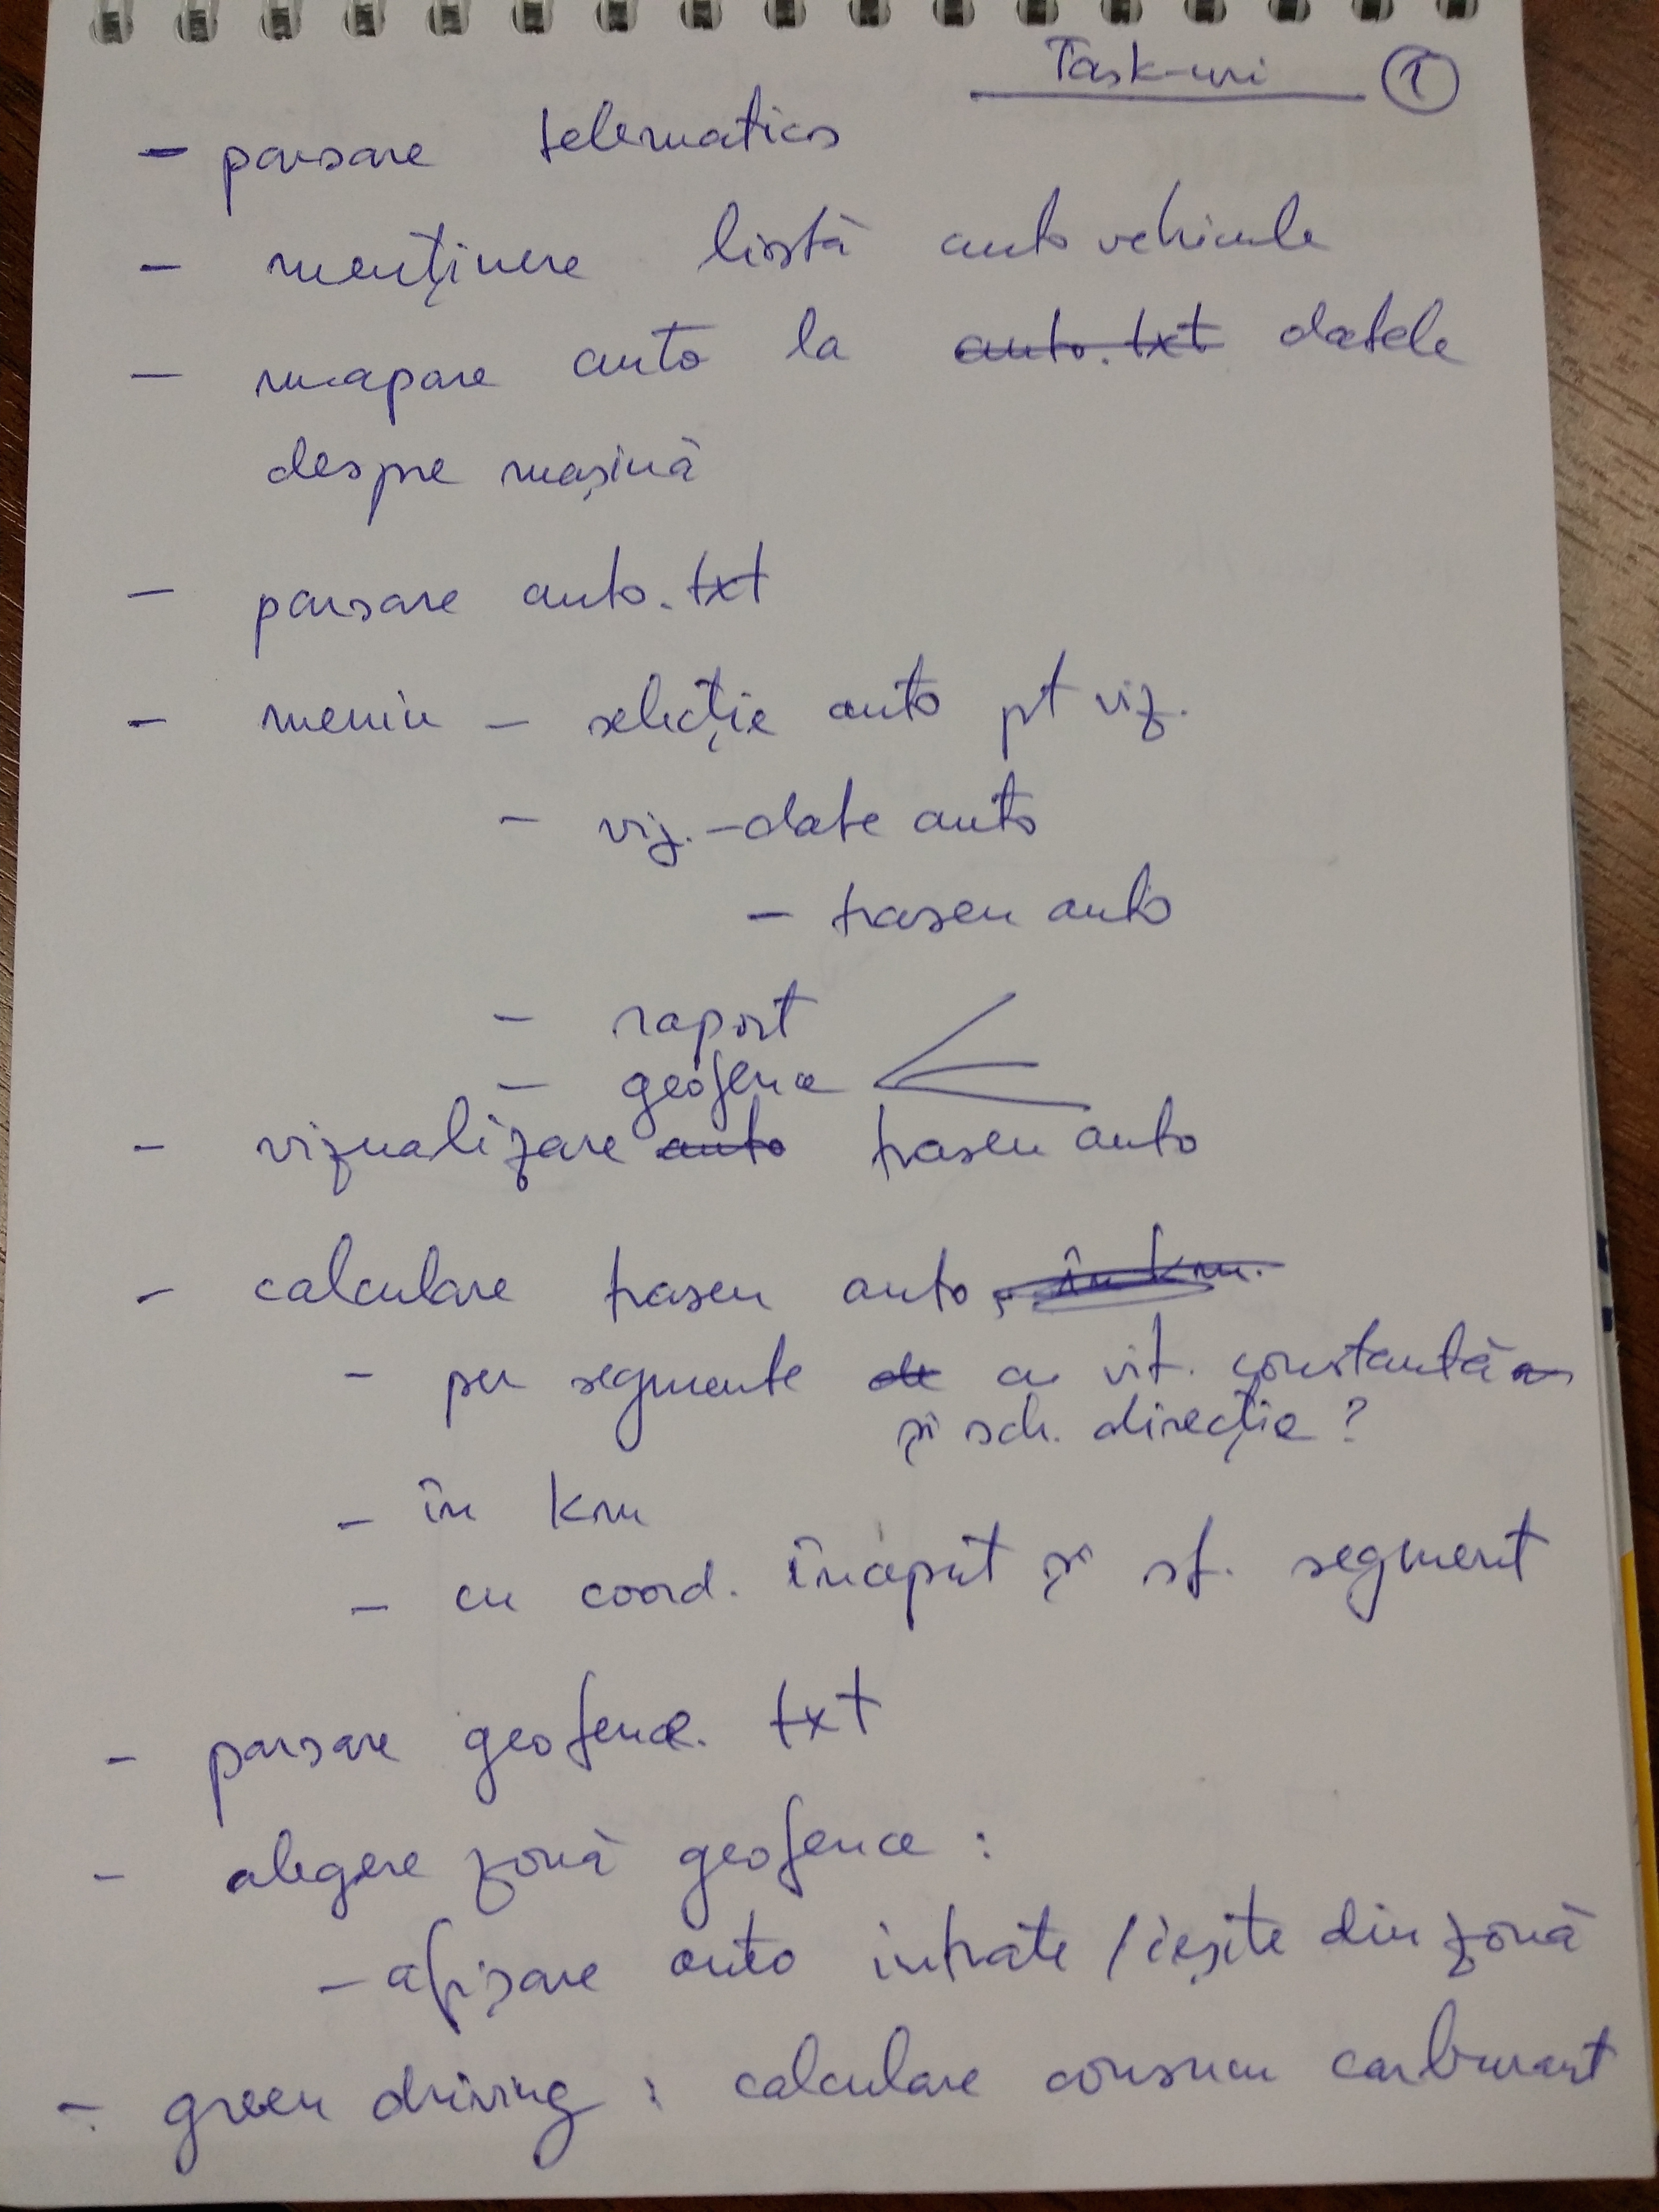 Task-uri 1
- parsare telematics
- menținere listă autovehicule
- mapare auto la auto.txt datele
despre mașină
- parsare auto.txt
- meniu - selecție auto pt viz.
- viz. - date auto
- traseu auto
- raport
- geofence
- vizualizare auto traseu auto
- calculare traseu auto, în km.
- per segmente de cu vit. constantă
și sch. direcție?
- în km
- cu coord. început și sf. segment
- parsare geofence.txt
- alegere zonă geofence:
- afișare auto intrate / ieșite din zonă
- green driving: calculare consum carburant